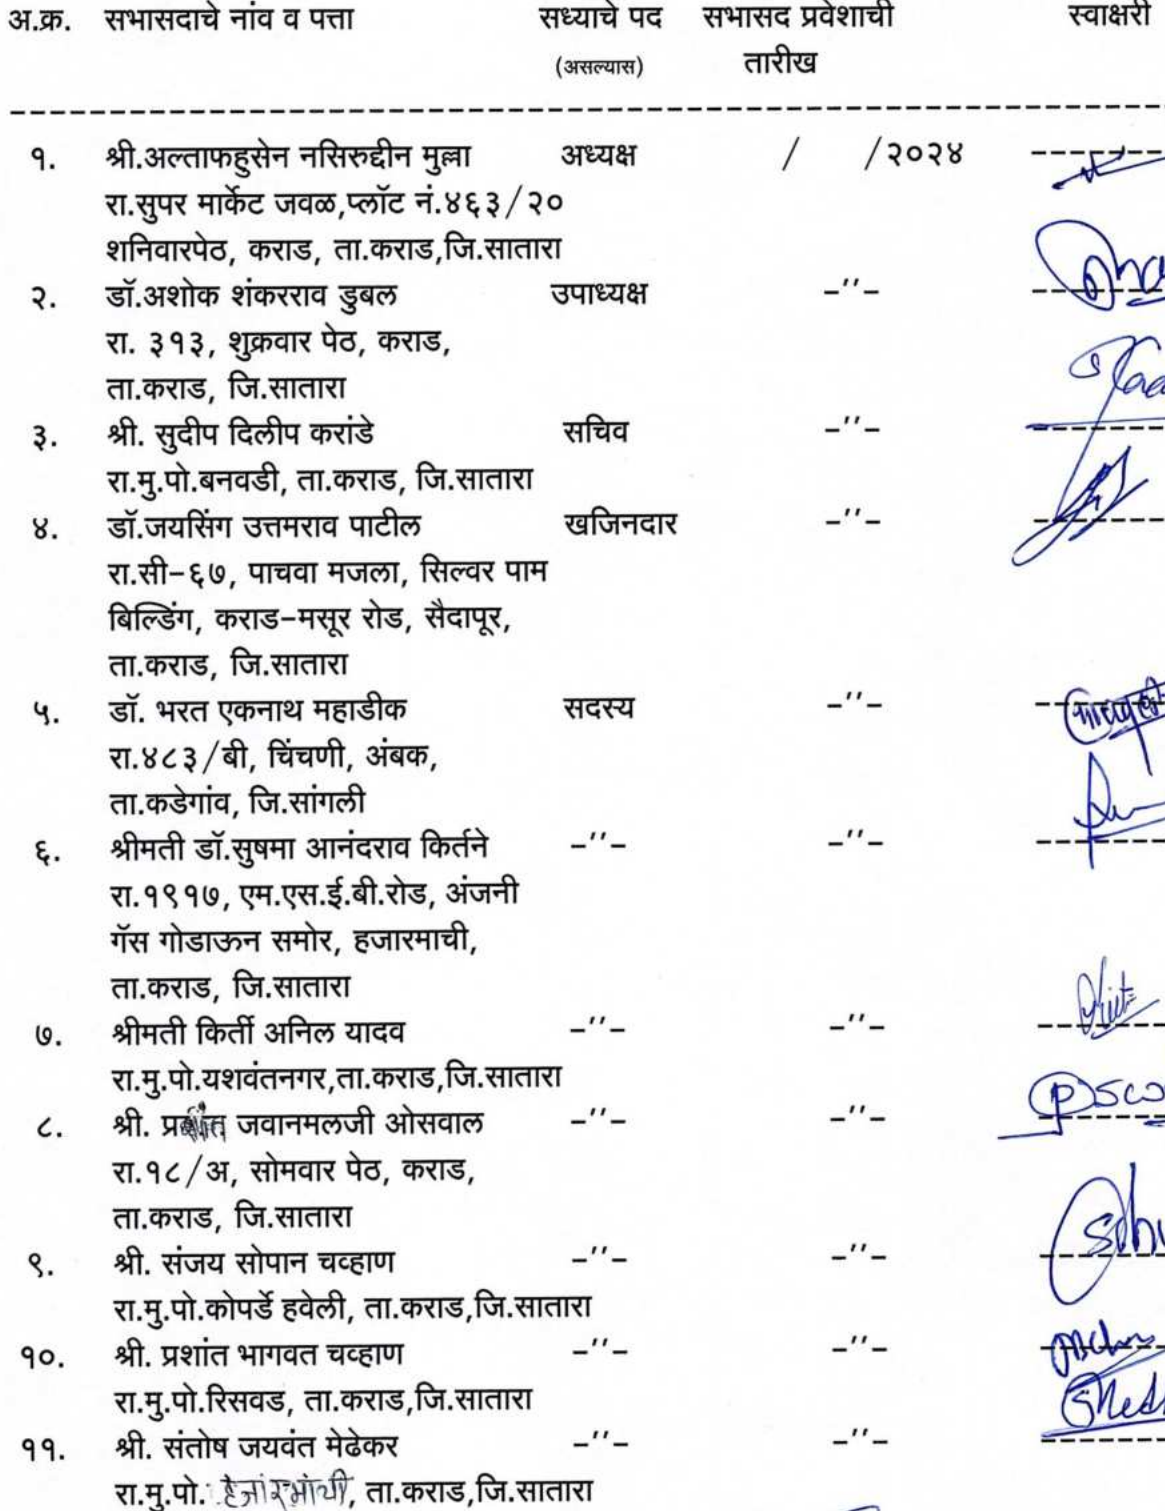 अ.क्र. सभासदाचे नांव व पत्ता सध्याचे पद सभासद प्रवेशाची स्वाक्षरी
(असल्यास) तारीख
१. श्री.अल्ताफहुसेन नसिरुद्दीन मुल्ला अध्यक्ष / /२०२४
रा.सुपर मार्केट जवळ,प्लॉट नं.४६३/२०
शनिवारपेठ, कराड, ता.कराड,जि.सातारा
२. डॉ.अशोक शंकरराव डुबल उपाध्यक्ष -''-
रा. ३१३, शुक्रवार पेठ, कराड,
ता.कराड, जि.सातारा
३. श्री. सुदीप दिलीप करांडे सचिव -''-
रा.मु.पो.बनवडी, ता.कराड, जि.सातारा
४. डॉ.जयसिंग उत्तमराव पाटील खजिनदार -''-
रा.सी-६७, पाचवा मजला, सिल्वर पाम
बिल्डिंग, कराड-मसूर रोड, सैदापूर,
ता.कराड, जि.सातारा
५. डॉ. भरत एकनाथ महाडीक सदस्य -''-
रा.४८३/बी, चिंचणी, अंबक,
ता.कडेगांव, जि.सांगली
६. श्रीमती डॉ.सुषमा आनंदराव किर्तने -''- -''-
रा.१९१७, एम.एस.ई.बी.रोड, अंजनी
गॅस गोडाऊन समोर, हजारमाची,
ता.कराड, जि.सातारा
७. श्रीमती किर्ती अनिल यादव -''- -''-
रा.मु.पो.यशवंतनगर,ता.कराड,जि.सातारा
८. श्री. जवानमलजी ओसवाल -''- -''-
रा.१८/अ, सोमवार पेठ, कराड,
ता.कराड, जि.सातारा
९. श्री. संजय सोपान चव्हाण -''- -''-
रा.मु.पो.कोपर्डे हवेली, ता.कराड,जि.सातारा
१०. श्री. प्रशांत भागवत चव्हाण -''- -''-
रा.मु.पो.रिसवड, ता.कराड,जि.सातारा
११. श्री. संतोष जयवंत मेढेकर -''- -''-
रा.मु.पो. , ता.कराड,जि.सातारा